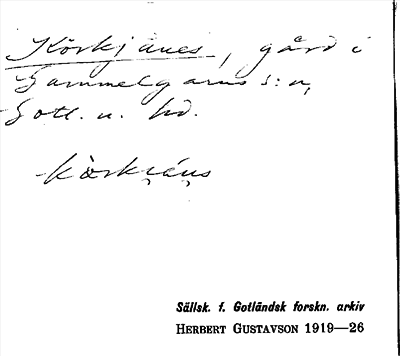 Körkjänes, gård i
Gammelgarns s:n,
Gotl. n. hd.
Sällsk. f. Gotländsk forskn. arkiv
HERBERT GUSTAVSON 1919—26